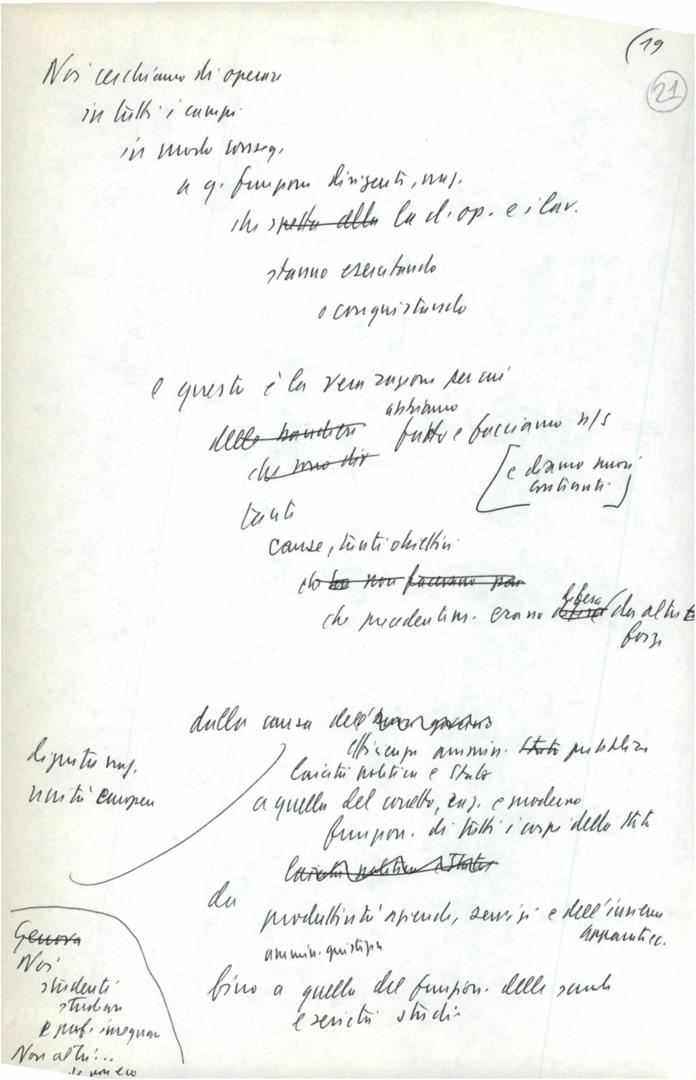 (19
21
Noi cerchiamo di operare
in tutti i campi
in modo conseg.
a q. funzione dirigente, naz.
che spetta alla la cl. op. e i lav.
stanno esercitando
o conquistando
e questa è la vera ragione per cui
abbiamo
delle bandiere fatto e facciamo n/s
che sono
[e diamo nuovi
contenuti]
tanti
cause, tanti obiettivi
che non facevano
che precedentem. erano difesa (da altre
forze
dalla causa dell'
efficienza ammin. Stato pubblica
laicità politica e Stato
dignità naz.
unità europea
a quella del corretto, e moderno
funzion. di tutti i corpi dello Stato
laicità politica e Stato
da
produttività aziende, servizi e dell'insieme
apparato ec.
ammin. giustizia
fino a quella del funzion. delle scuole
e serietà studi
Genova
Noi
studenti
studiare
e prof. insegnare
Non altri...